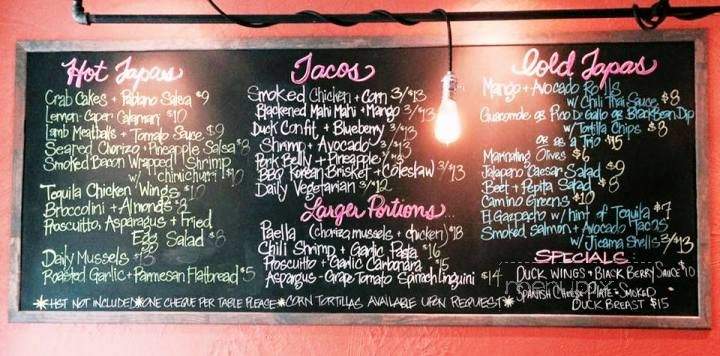 Hot Tapas
Crab Cakes + Poblano Salsa $9
Lemon-Caper Calamari $10
Lamb Meatballs + Tomato Sauce $9
Seared Chorizo + Pineapple Salsa $8
Smoked Bacon Wrapped Shrimp
w/ chimichurri $10
Tequila Chicken Wings $10
Broccolini + Almonds $8
Proscuitto, Asparagus + Fried
Egg Salad $8
Daily Mussels $13
Roasted Garlic + Parmesan Flatbread $5
Tacos
Smoked Chicken + Corn 3/$13
Blackened Mahi Mahi + Mango 3/$13
Duck Confit + Blueberry 3/$13
Shrimp + Avocado 3/$13
Pork Belly + Pineapple 3/$13
BBQ Korean Brisket + Coleslaw 3/$13
Daily Vegetarian 3/$12
Larger Portions...
Paella (chorizo, mussels + chicken) $18
Chili Shrimp + Garlic Pasta $16
Proscuitto + Garlic Carbonara $15
Asparagus-Grape Tomato Spinach Linguini $14
Cold Tapas
Mango + Avocado Rolls
w/ Chili Thai Sauce $8
Guacamole or Pico Di Gallo or Black Bean Dip
w/ Tortilla Chips $8
or as a Trio $15
Marinating Olives $6
Jalapeno Caesar Salad $9
Beet + Pepita Salad $8
Camino Greens $10
El Gazpacho w/ hint of Tequila $7
Smoked Salmon + Avocado Tacos
w/ Jicama Shells 3/$13
SPECIALS
DUCK WINGS + BLACK BERRY SAUCE $10
SPANISH CHEESE PLATE + SMOKED
DUCK BREAST $15
*HST NOT INCLUDED*ONE CHEQUE PER TABLE PLEASE*CORN TORTILLAS AVAILABLE UPON REQUEST*
menupix